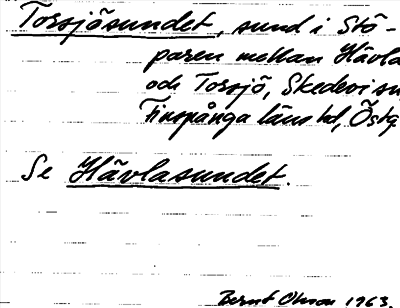 Torsjösundet, sund i Stö-
paren mellan Hävla
och Torsjö, Skedevi sn
Finspånga läns hd, Östg.
Se Hävlasundet.
Bernt Olsson 1963.